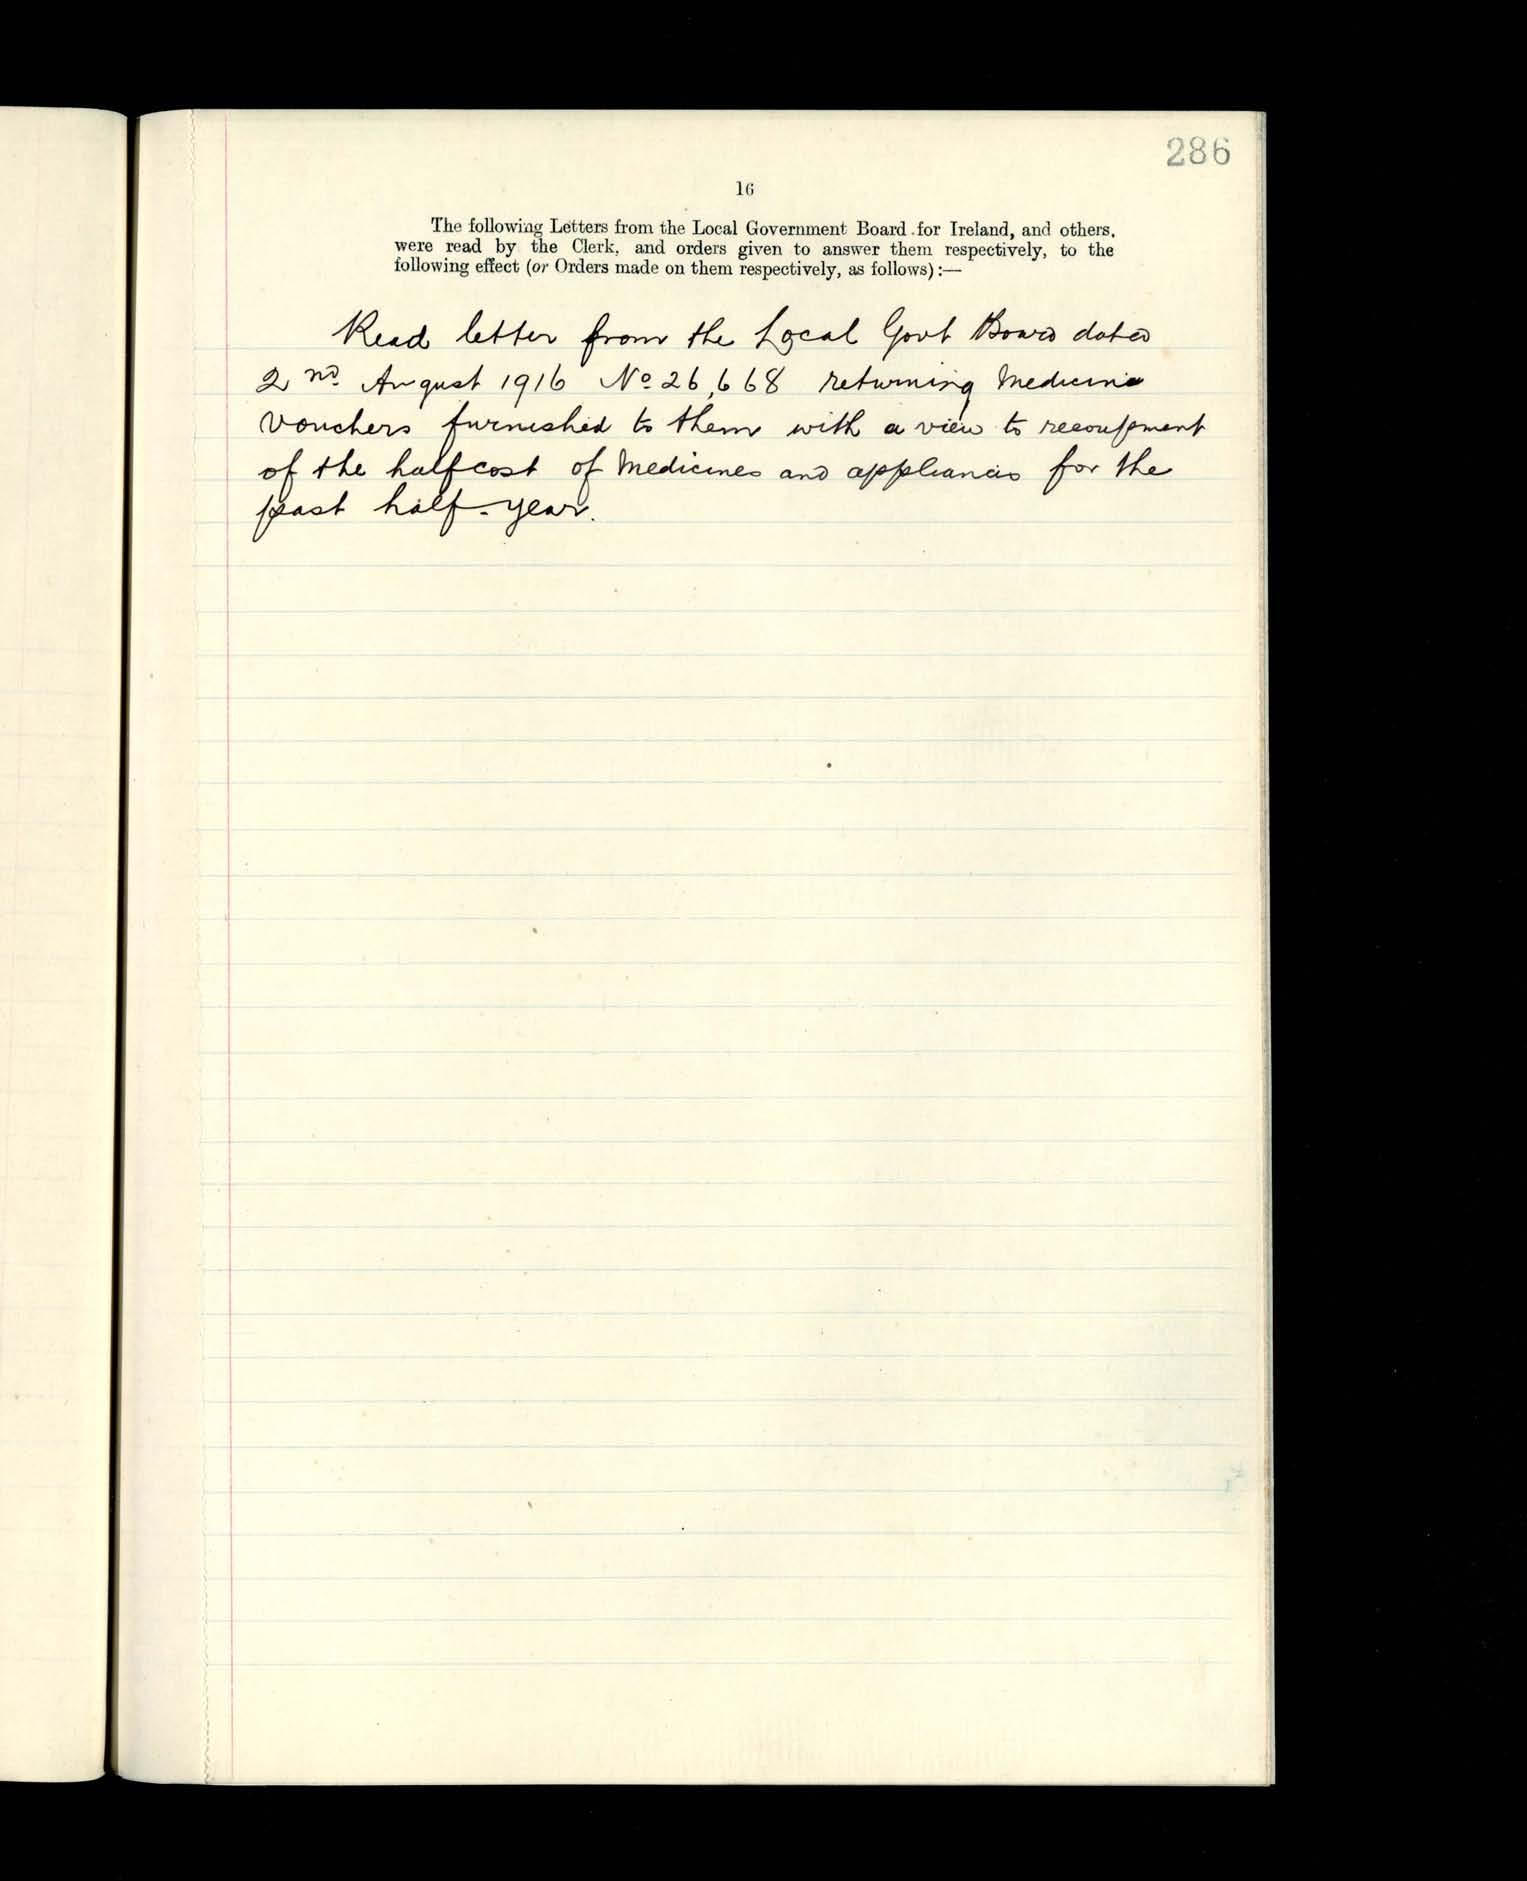 286
16
The following Letters from the Local Government Board for Ireland, and others,
were read by the Clerk, and orders given to answer them respectively, to the
following effect (or Orders made on them respectively, as follows) :—
Read letter from the Local Govt Board dated
2nd August 1916 No 26,668 returning Medicine
Vouchers furnished to them with a view to recoupment
of the half cost of Medicines and appliances for the
past half-year.